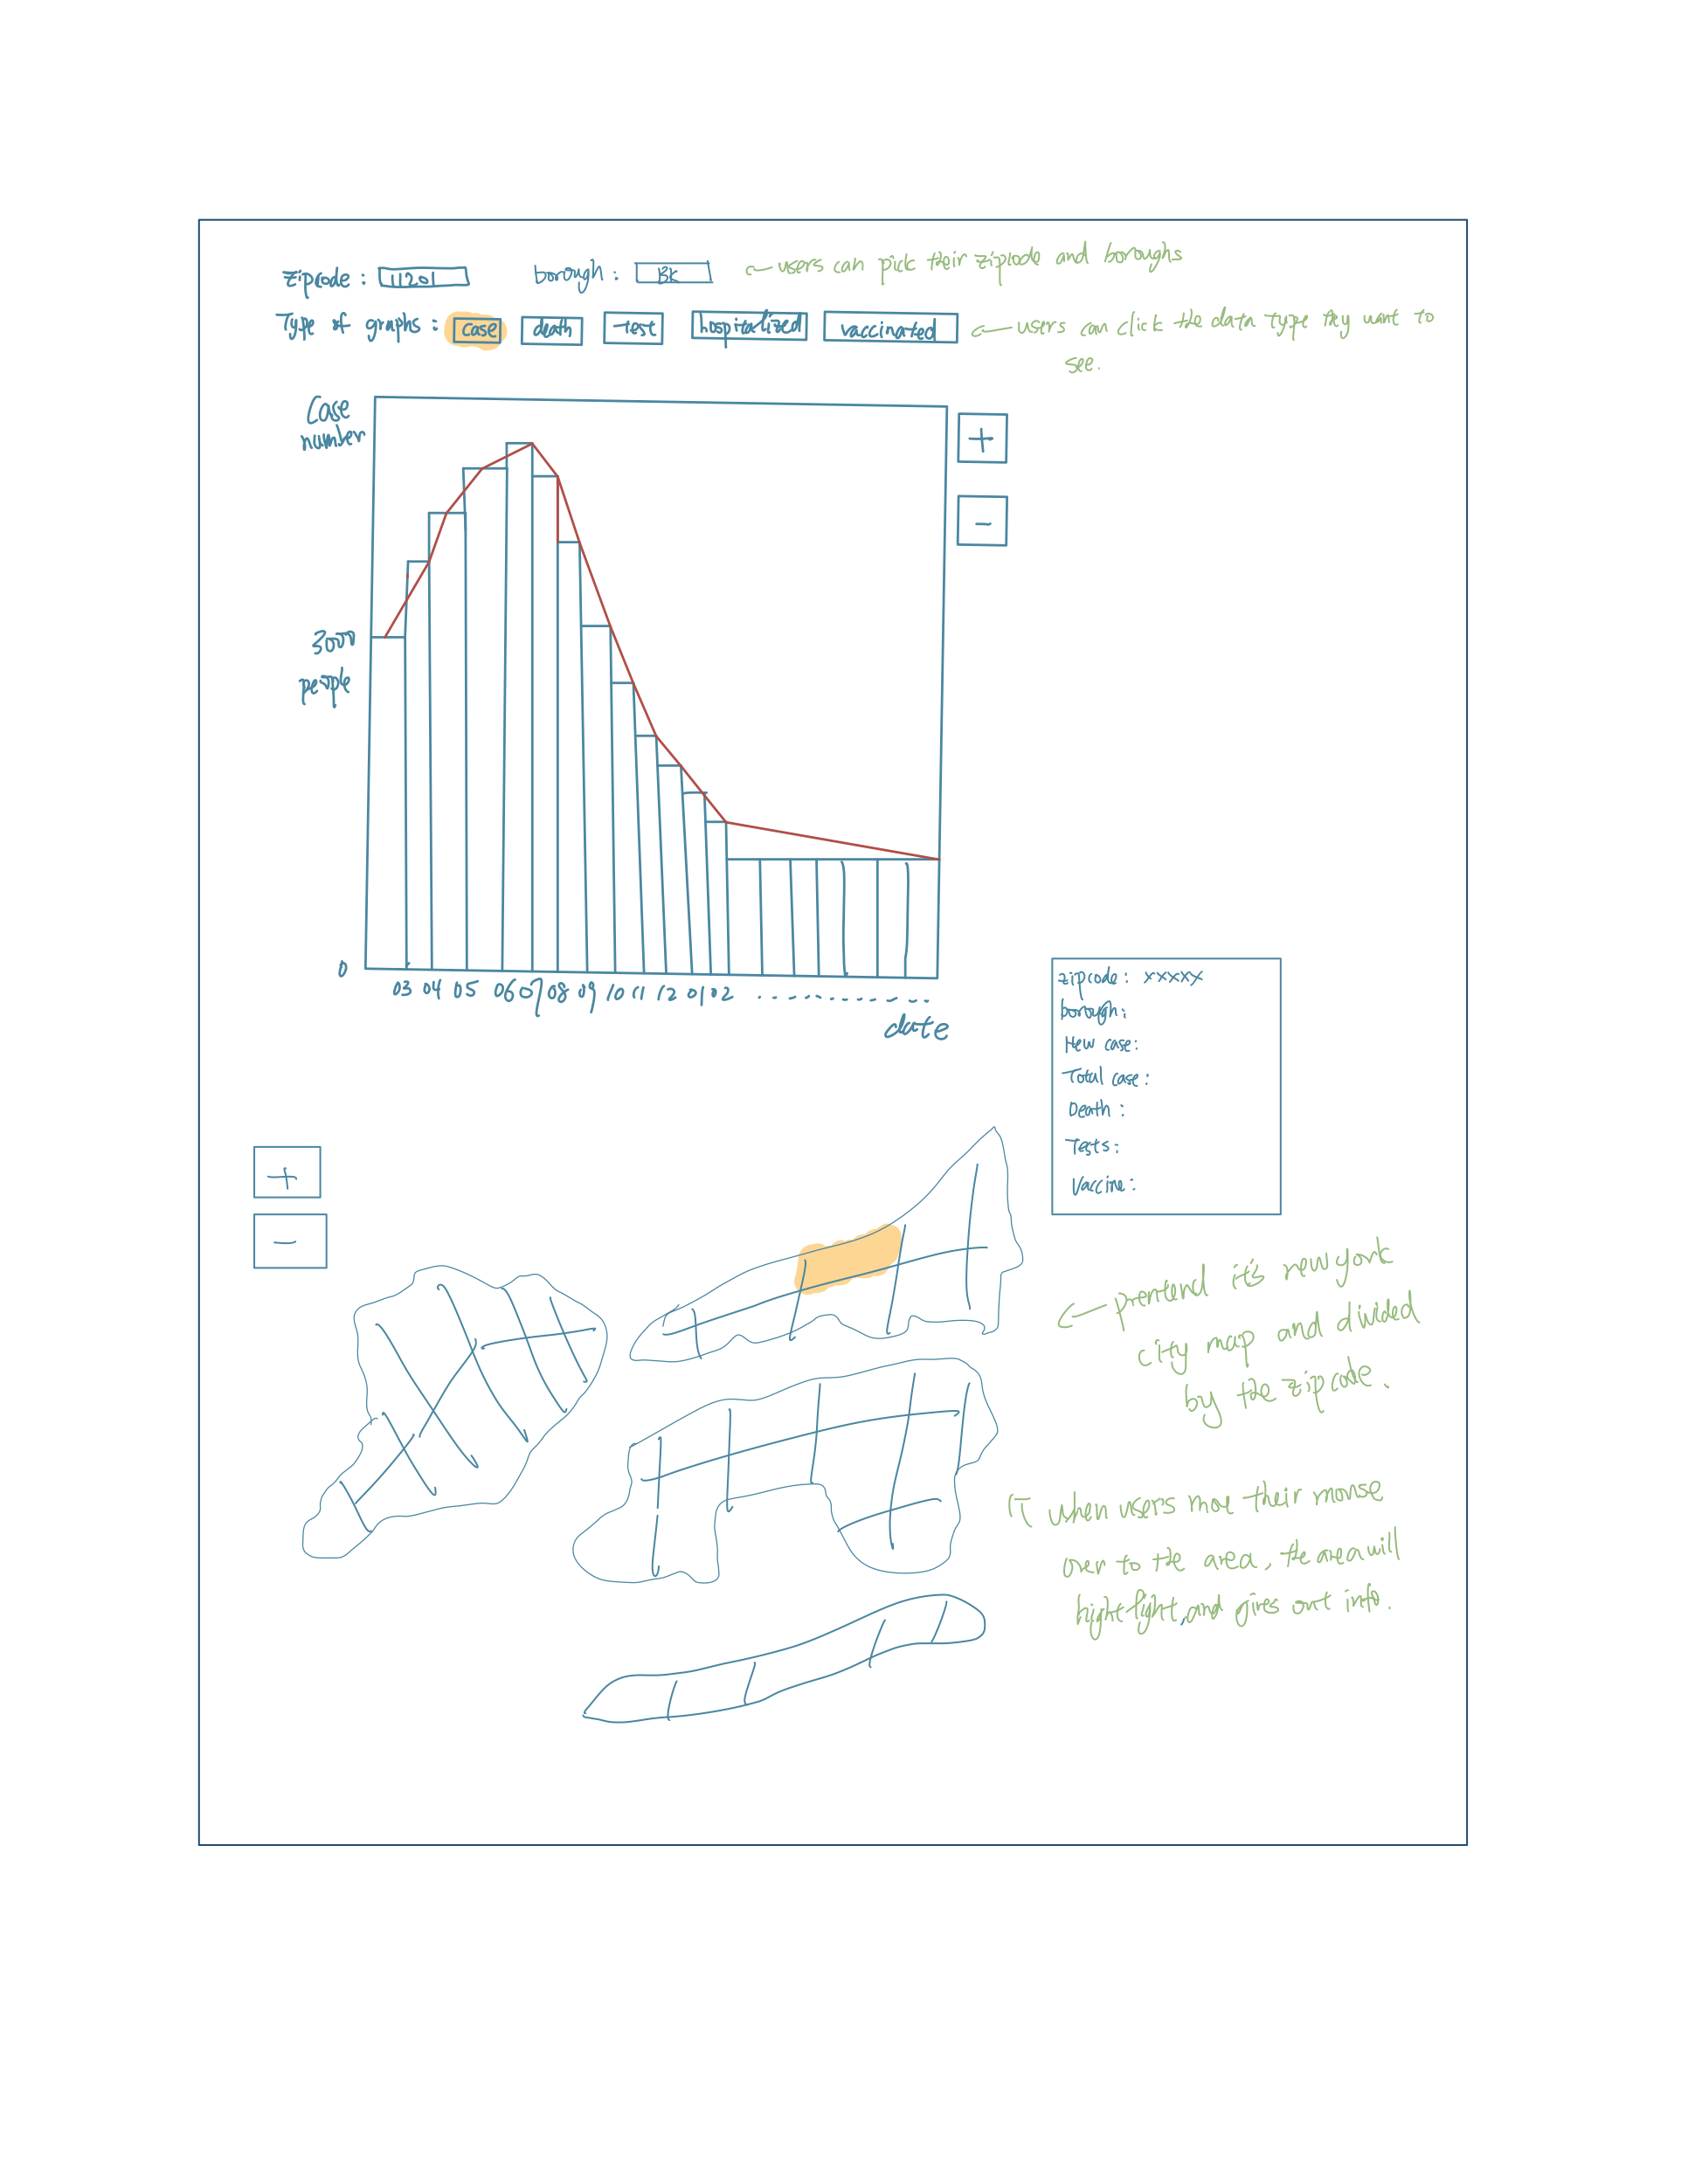 zipcode : 11201 borough : BK ← users can pick their zipcode and boroughs
Type of graphs : case death test hospitalized vaccinated ← users can click the data type they want to
see.
Case
number
+
-
3000
people
0
03 04 05 06 07 08 09 10 11 12 01 02 . . . . . . . . . . . . . . .
date
zipcode : xxxxx
borough:
New case:
Total case:
Death :
Tests :
Vaccine :
+
-
← prentend it's new york
city map and divided
by the zipcode.
↑ when users move their mouse
over to the area, the area will
hightlight, and gives out info.